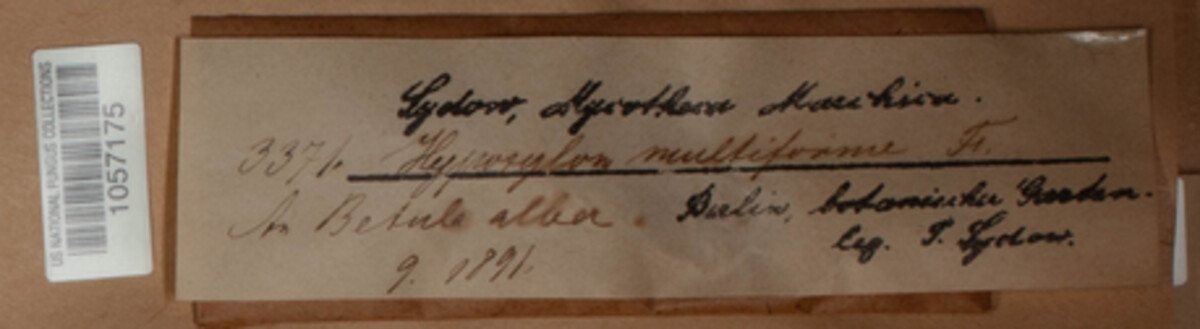 US NATIONAL FUNGUS COLLECTIONS
1057175
Sydow, Mycotheca Marchica.
3371. Hypoxylon multiforme Fr.
An Betula alba. Berlin, botanischer Garten.
9. 1891. leg. P. Sydow.